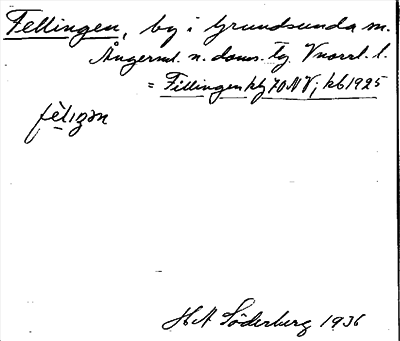 Fellingen, by i Grundsunda sn.
Ångerml. n. doms. tg. Vnorrl. l.
= Fillingen kbl 70 NV; kb 1925
fèlıŋən
H A Söderberg 1936